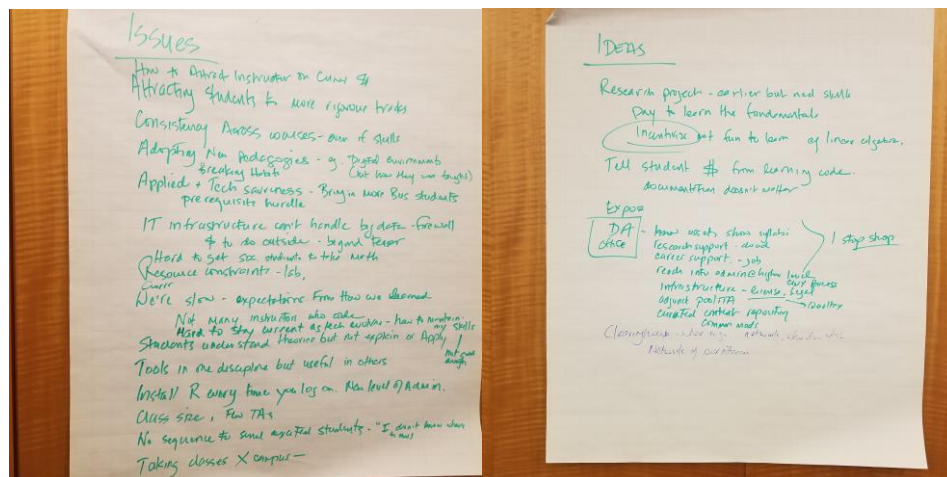 Issues
How to Attract Instructor on Curr $
Attracting Students to more rigorous tracks
Consistency Across courses - even if skills
Adopting New Pedagogies - eg. "Digital environments
Breaking Habits (not how they were taught)
Applied + Tech savviness - Bring in more Bus students
prerequisite hurdle
IT infrastructure can't handle big data - firewall
$ to do outside - beyond
Hard to get soc. students to take math
Resource constraints - lab,
Curr
We're slow - expectations From How we learned
Not many instructors who code
Hard to stay current as tech evolves - how to maintain my skills
Students understand theories but not explain or Apply
math
Tools in one discipline but useful in others
Install R every time you log on. New level of Admin.
Class size, Few TAs
No sequence to send excited students - "I don't know where
Taking classes X campus -
IDEAS
Research project - earlier but need skills
Day to learn the fundamentals
Incentivize not fun to learn eg linear algebra.
Tell student $ from learning code.
documentation doesn't matter
Expose
DA office
- know assets, share syllabi
research support - cloud
career support - job
reach into admin @ higher level
infrastructure - license, legal
adjunct pool/TA
curated content repository
common mods
1 stop shop
Clearinghouse
Network of